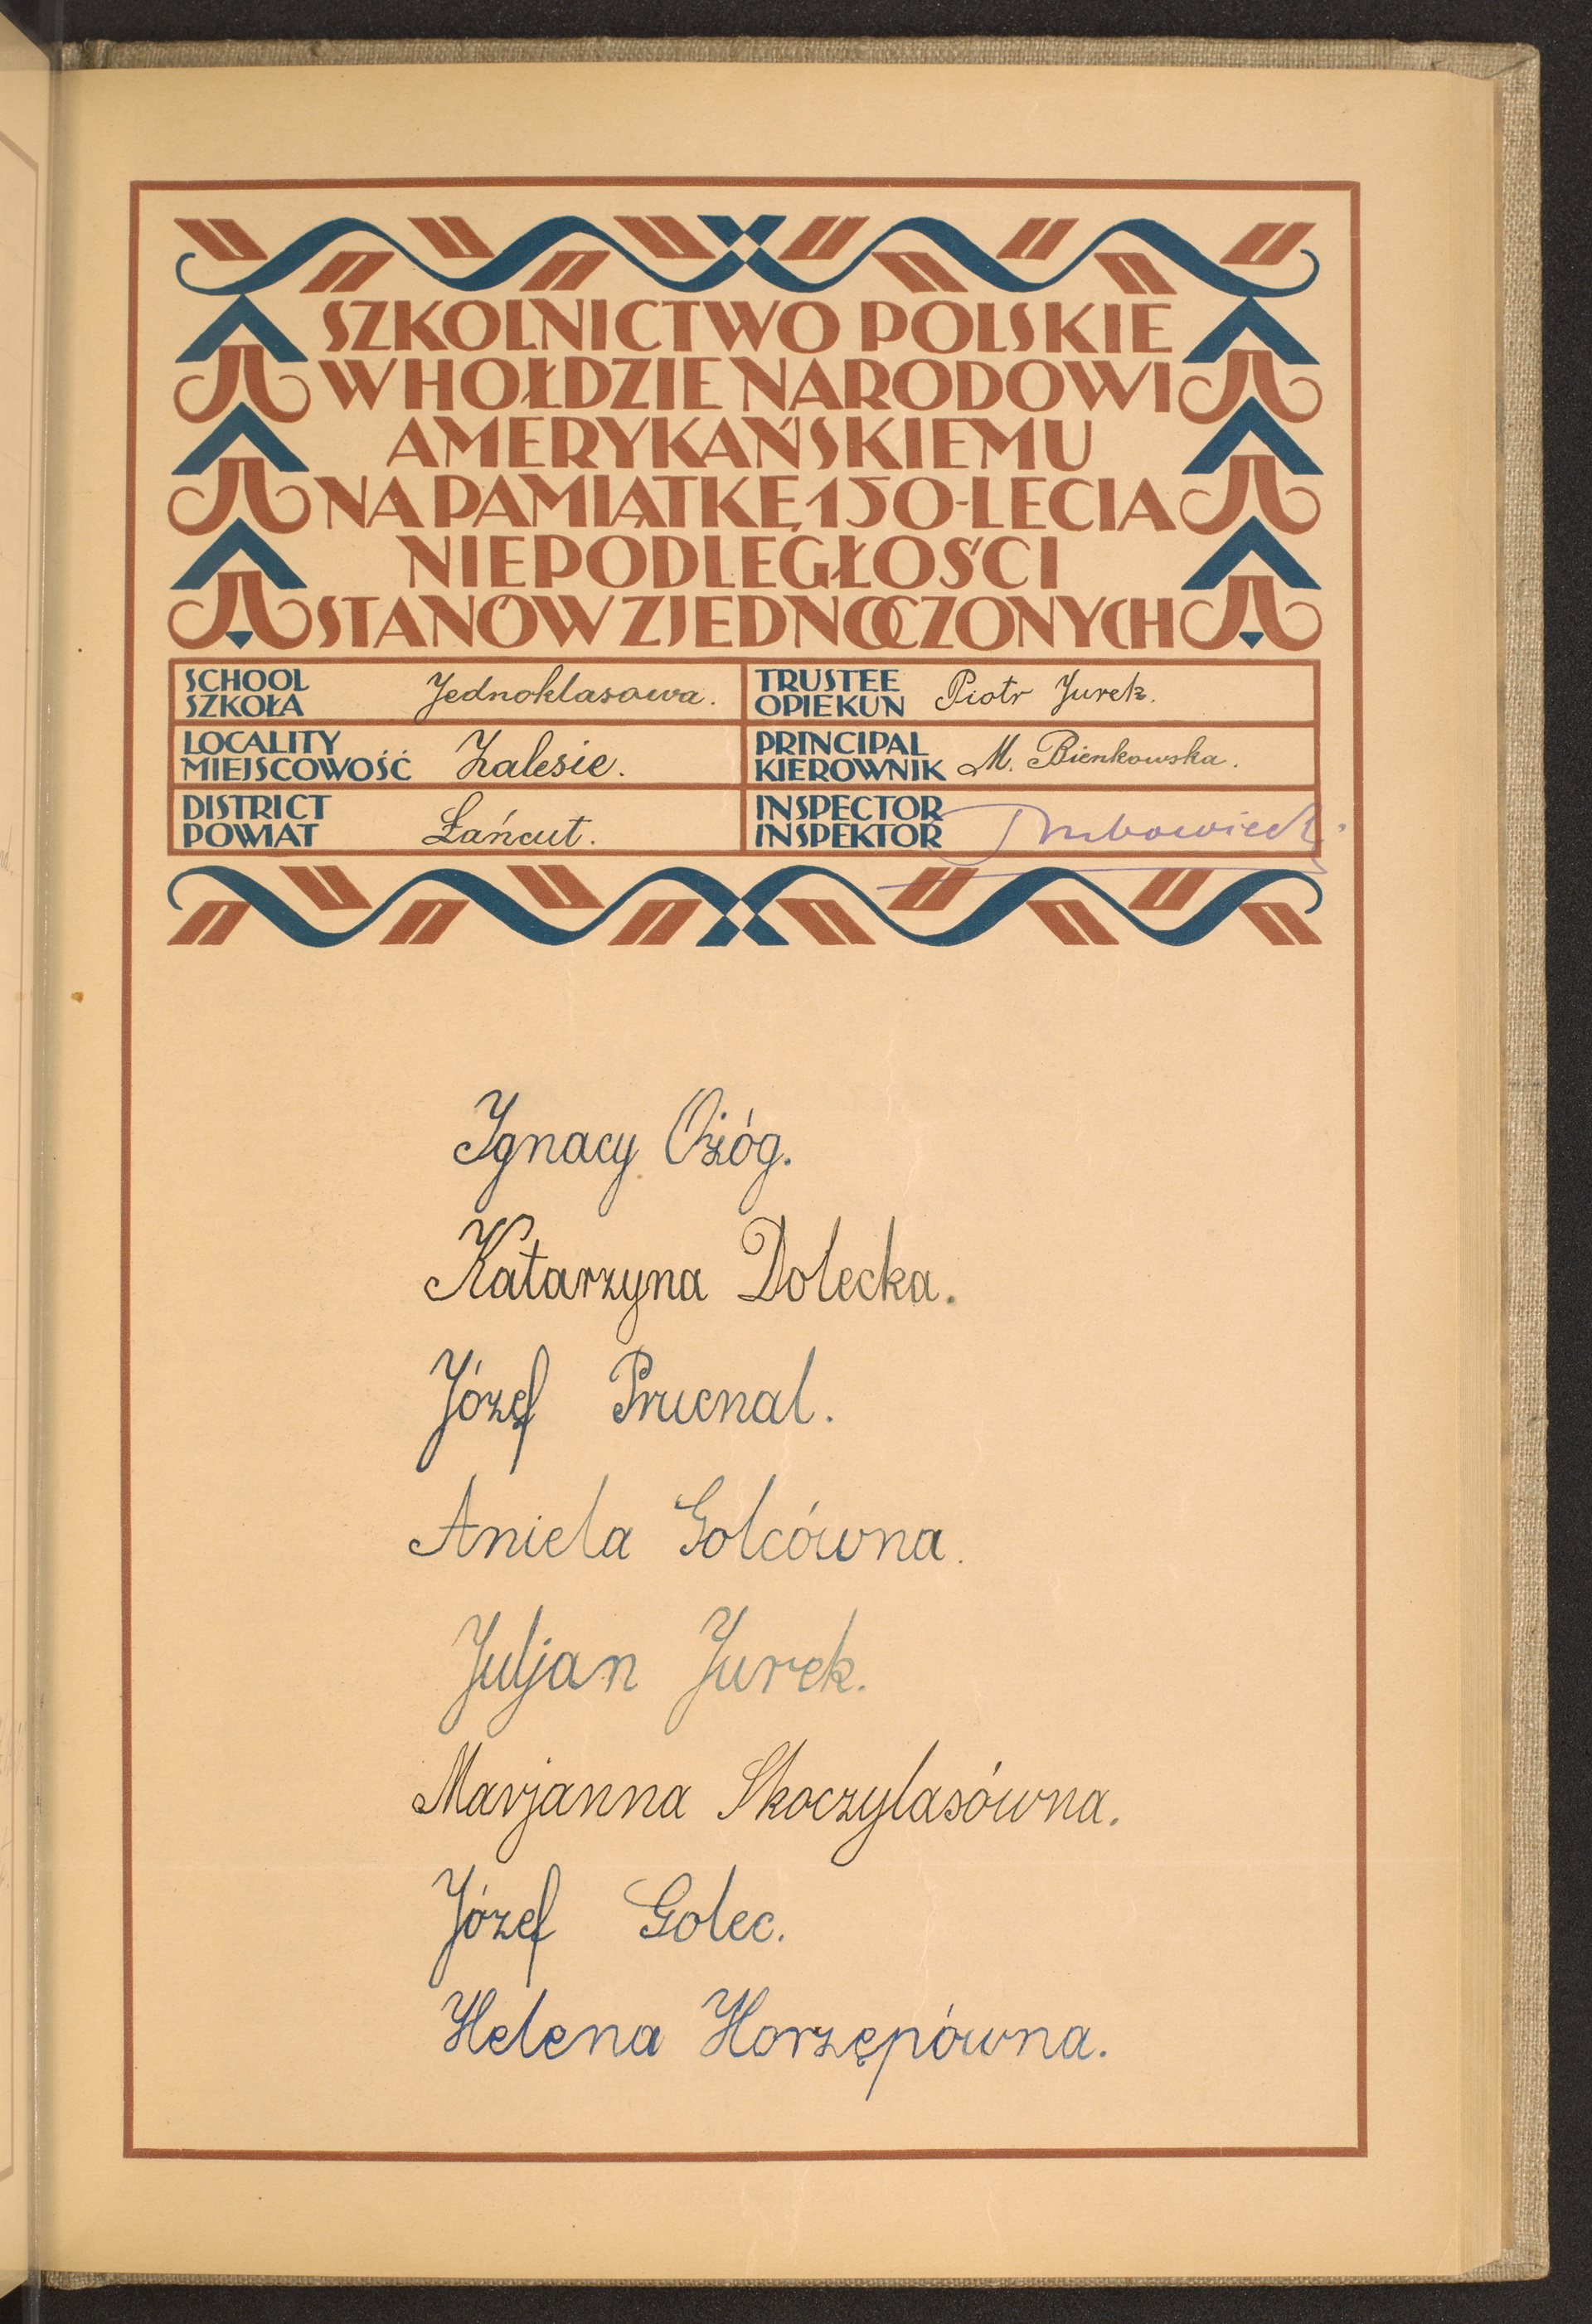 SZKOLNICTWO POLSKIE
W HOŁDZIE NARODOWI
AMERYKAŃSKIEMU
NA PAMIĄTKĘ 150-LECIA
NIEPODLEGŁOŚCI
STANÓW ZJEDNOCZONYCH
SCHOOL
SZKOŁA Jednoklasowa.
TRUSTEE
OPIEKUN Piotr Jurek.
LOCALITY
MIEJSCOWOŚĆ Zalesie.
PRINCIPAL
KIEROWNIK M. Bienkowska.
DISTRICT
POWIAT Łańcut.
INSPECTOR
INSPEKTOR
Ignacy Ożóg.
Katarzyna Dolecka.
Józef Prucnal.
Aniela Golcówna.
Juljan Jurek.
Marjanna Skoczylasówna.
Józef Golec.
Helena Horzępówna.